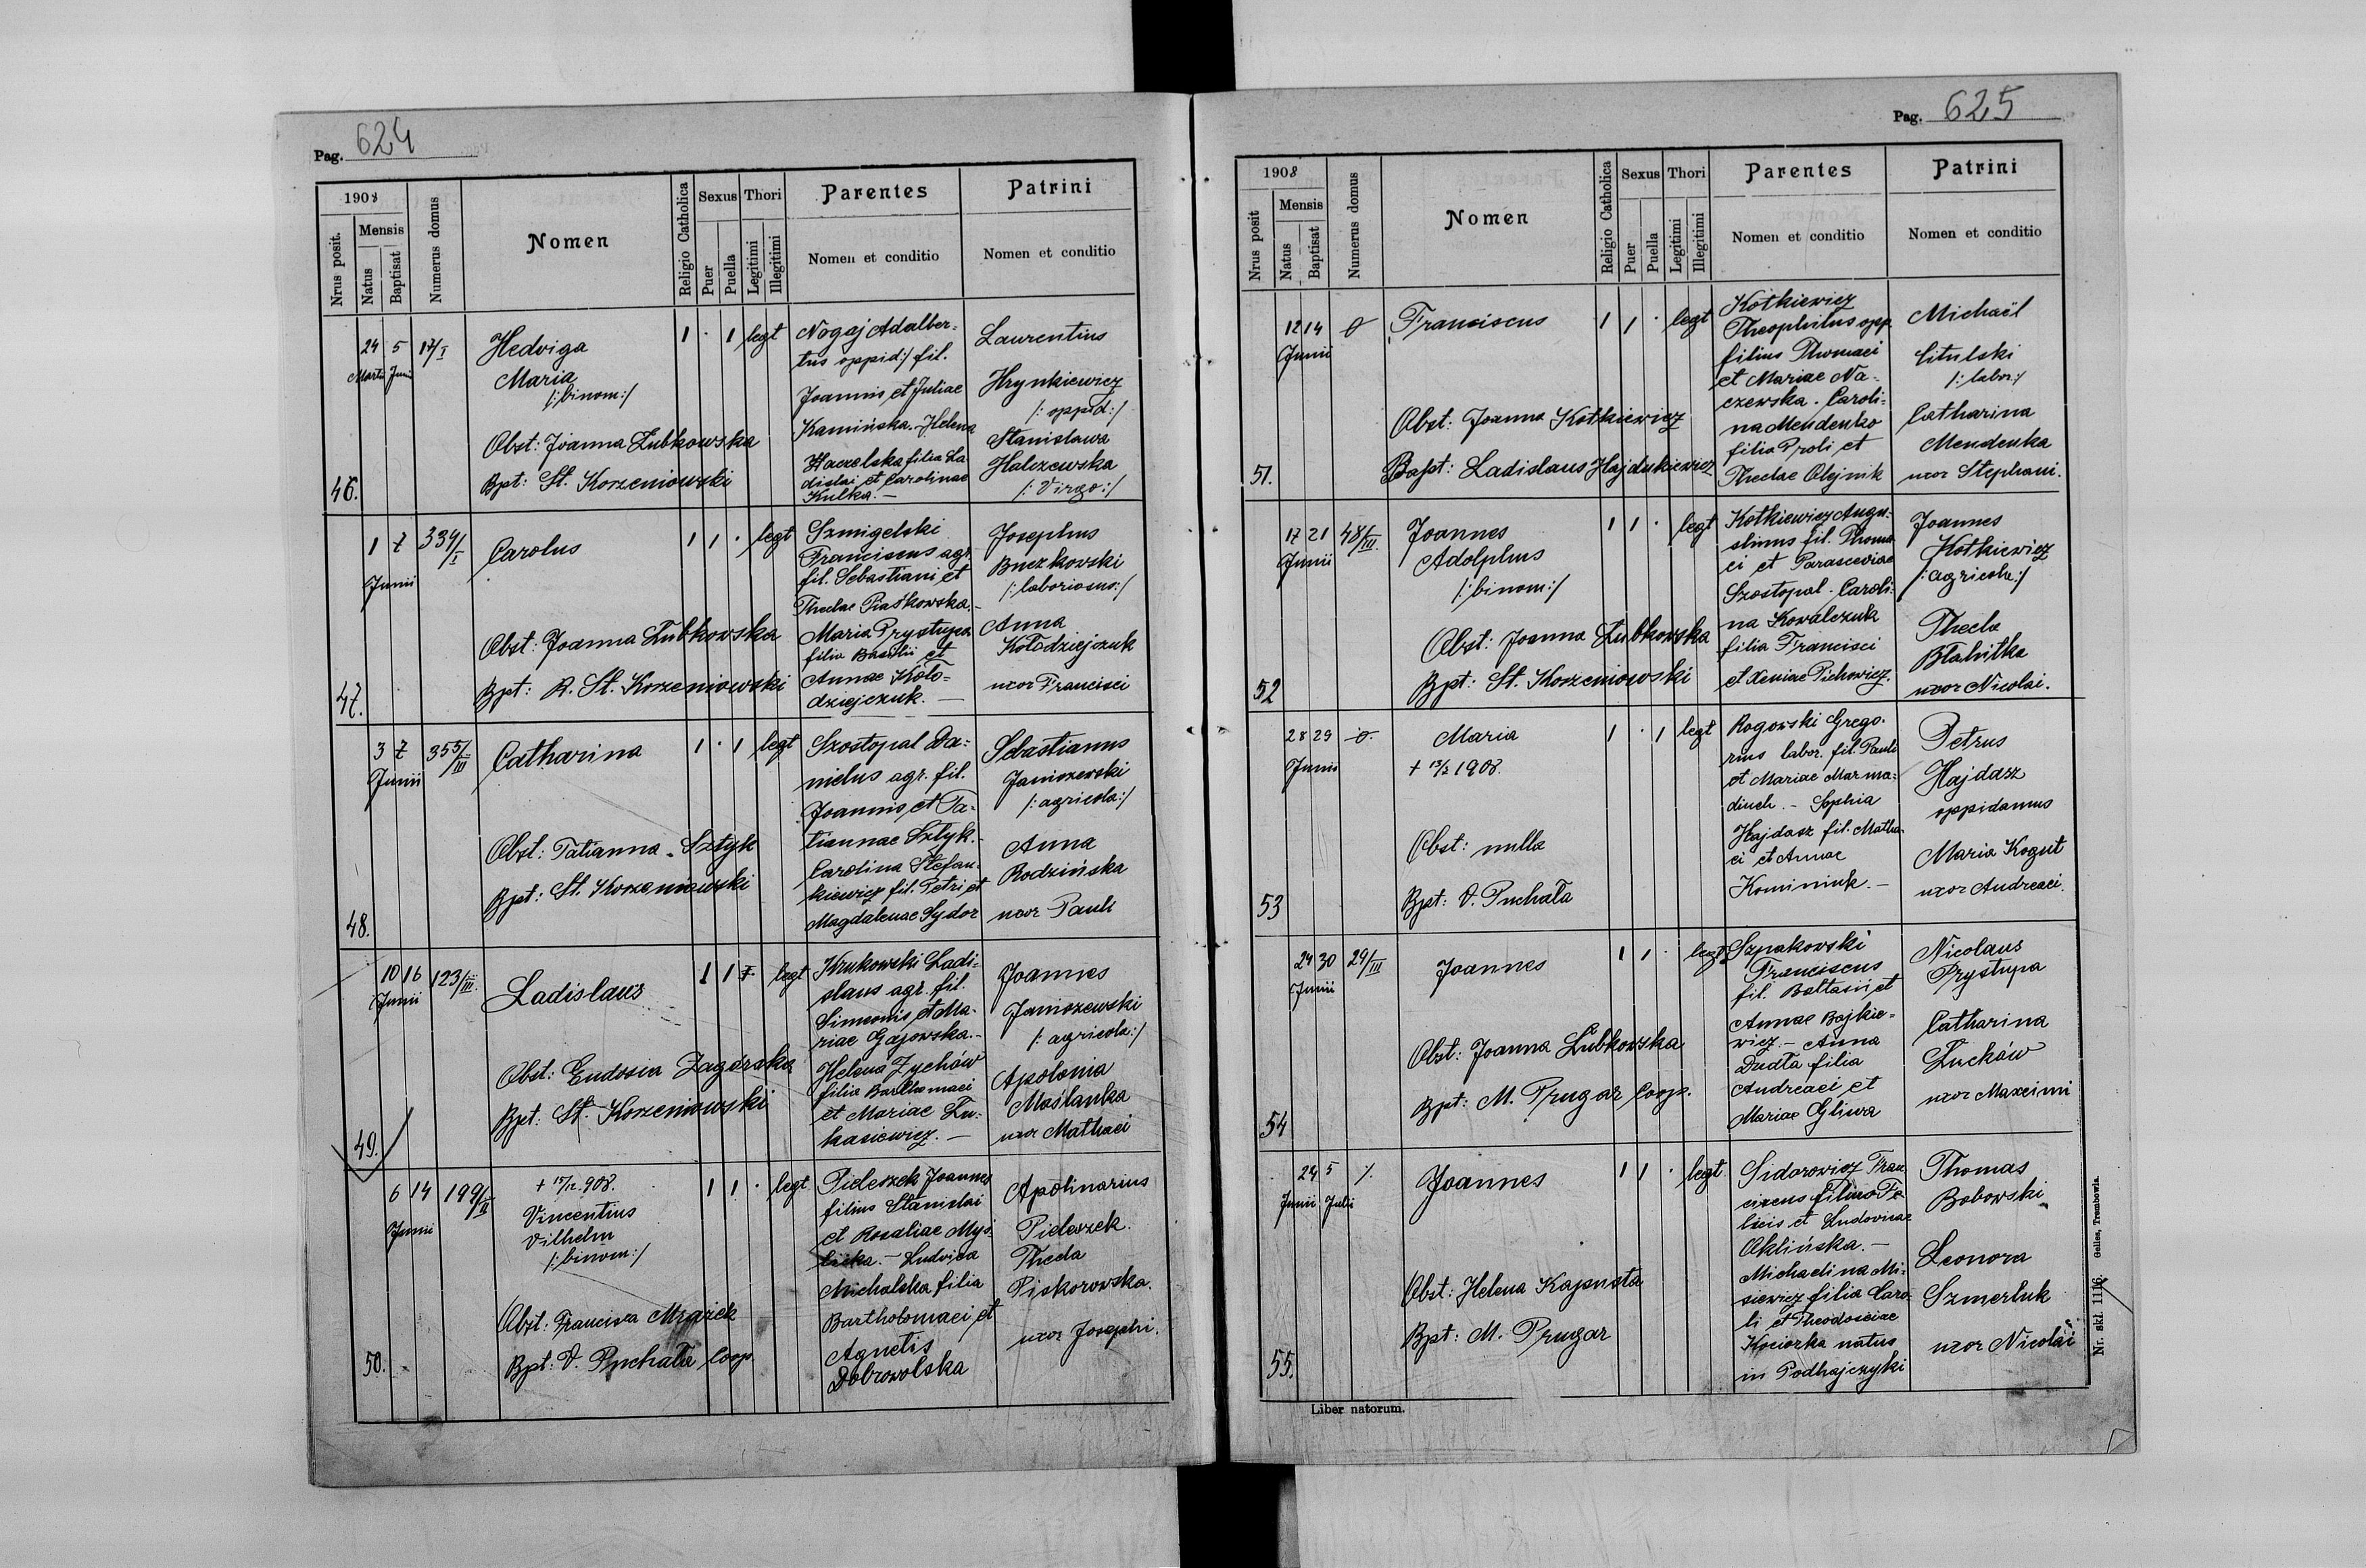 Pag. 624
1908
Nrus posit.
Mensis
Natus
Baptisat
Numerus domus
Nomen
Religio Catholica
Sexus
Puer
Puella
Thori
Legitimi
Illegitimi
Parentes
Nomen et conditio
Patrini
Nomen et conditio
46.
24 5 17/I
Martii Junii
Hedviga
Maria
/:binom:/
Obst: Joanna Łubkowska
Bpt: St. Korzeniowski
1 · 1 legt
Nogaj Adalber-
tus oppid:/ fil.
Joannis et Juliae
Kamińska. Helena
filia La
dislai et Carolinae
Kulka. —
Laurentius
Hrynkiewicz
/: oppid:/
Stanisława
Halczewska
/: Virgo:/
47.
1 7 334/I
Junii
Carolus
Obst: Joanna Łubkowska
Bpt: R. St. Korzeniowski
1 1 · legt
Szmigelski
Franciscus agr.
fil. Sebastiani et
Theclae Piaśkowska.—
Maria Prystupa
filia Basilii et
Annae Koło=
dziejczuk. —
Josephus
Buczkovski
/: laboriosus:/
Anna
Kołodziejczuk
uxor Francisci
48.
3 7 355/III
Junii
Catharina
Obst: Tatianna Sztyk
Bpt: St. Korzeniowski
1 · 1 legt
Szostopal Da=
nielus agr. fil.
Joannis et Ta-
tiannae Sztyk.
Carolina Stefan-
kiewicz fil. Petri et
Magdalenae Sydor
Sebastianus
Janiszewski
/: agricola:/
Anna
Rodzińska
uxor Pauli
49.
10 16 123/III.
Junii
Ladislaus
Obst: Eudosia Zagórska
Bpt: St. Korzeniowski
1 1 legt
Krukowski Ladi=
slaus agr. fil.
Simeonis et Ma-
riae Gajowska.—
Helena Zychów
filia Barthomaei
et Mariae Łu-
kasiewicz. —
Joannes
Janiszewski
/: agricola:/
Apolonia
Maślanka
uxor Mathaei
50.
6 14 199/II
Junii
+ 15/12 908.
Vincentius
Vilhelm
/:binom:/
Obst: Francisca Mrozek
Bpt: V. Puchała Coop.
1 1 · legt.
Pieleszek Joannes
filius Stanislai
et Rosaliae Myś-
Ludvica
Michalska filia
Bartholomaei et
Agnetis
Dobrowolska
Apolinarius
Pieleszek.
Thecla
Piskorowska.
uxor Josephi.
Pag. 625
1908
Nrus posit
Mensis
Natus
Baptisat
Numerus domus
Nomen
Religio Catholica
Sexus
Puer
Puella
Thori
Legitimi
Illegitimi
Parentes
Nomen et conditio
Patrini
Nomen et conditio
51.
12 14
Junii
Franciscus
Obst: Joanna Kotkiewicz
Bapt: Ladislaus Hajdukiewicz
1 1 · legt
Kotkiewicz
Theophilus opp.
filius Thomaei
et Mariae Na-
czewska. Caroli=
na Mendenko
filia Proli et
Theclae Olejnik
Michaël
Citulski
/: labor:/
Catharina
Mendenka
uxor Stephani.
52
17 21 48/III.
Junii
Joannes
Adolphus
/:binom:/
Obst: Joanna Łubkowska
Bpt: St. Korzeniowski
1 1 · legt
Kotkiewicz Augu-
stinus fil. Thoma
ei et Parascevae
Szostopal. Caroli-
na Kowalczuk
filia Francisci
et Xeniae Pichowicz.
Joannes
Kotkiewicz
/: agricola:/
Thecla
Błahitka
uxor Nicolai.
53
28 29
Junii
Maria
+ 13/2 1908.
Obst: nulla
Bpt: V. Puchała
1 · 1 legt
Rogowski Grego-
rius labor. fil. Pauli
et Mariae Marma=
diuch. — Sophia
Hajdasz fil. Matha-
ei et Annae
Kominiuk. —
Petrus
Hajdasz
oppidanus
Maria Kogut
uxor Andreaei.
54
24 30 29/III
Junii
Joannes
Obst: Joanna Łubkowska
Bpt: M. Prugar Coop.
1 1 · legt
Szpakowski
Franciscus
fil. Baltasii et
Annae Bajkie=
wicz. — Anna
Dudła filia
Andreaei et
Mariae Gliwa
Nicolaus
Prystupa
Catharina
Łuchów
uxor Maxcimi
55.
24 5 /.
Junii Julii
Joannes
Obst: Helena Kapusta
Bpt: M. Prugar
1 1 · legt.
Sidorowicz Fran
ciscus filius Fe-
licis et Ludovicae
Oklińska. —
Michaelina Mi-
siewicz filia Caro-
li et Theodosiae
Kociorka natus
in Podhajczyki
Thomas
Bobowski
Leonora
Szmerluk
uxor Nicolai
Liber natorum.
Nr. skł. 1116. Gelles, Trembowla.